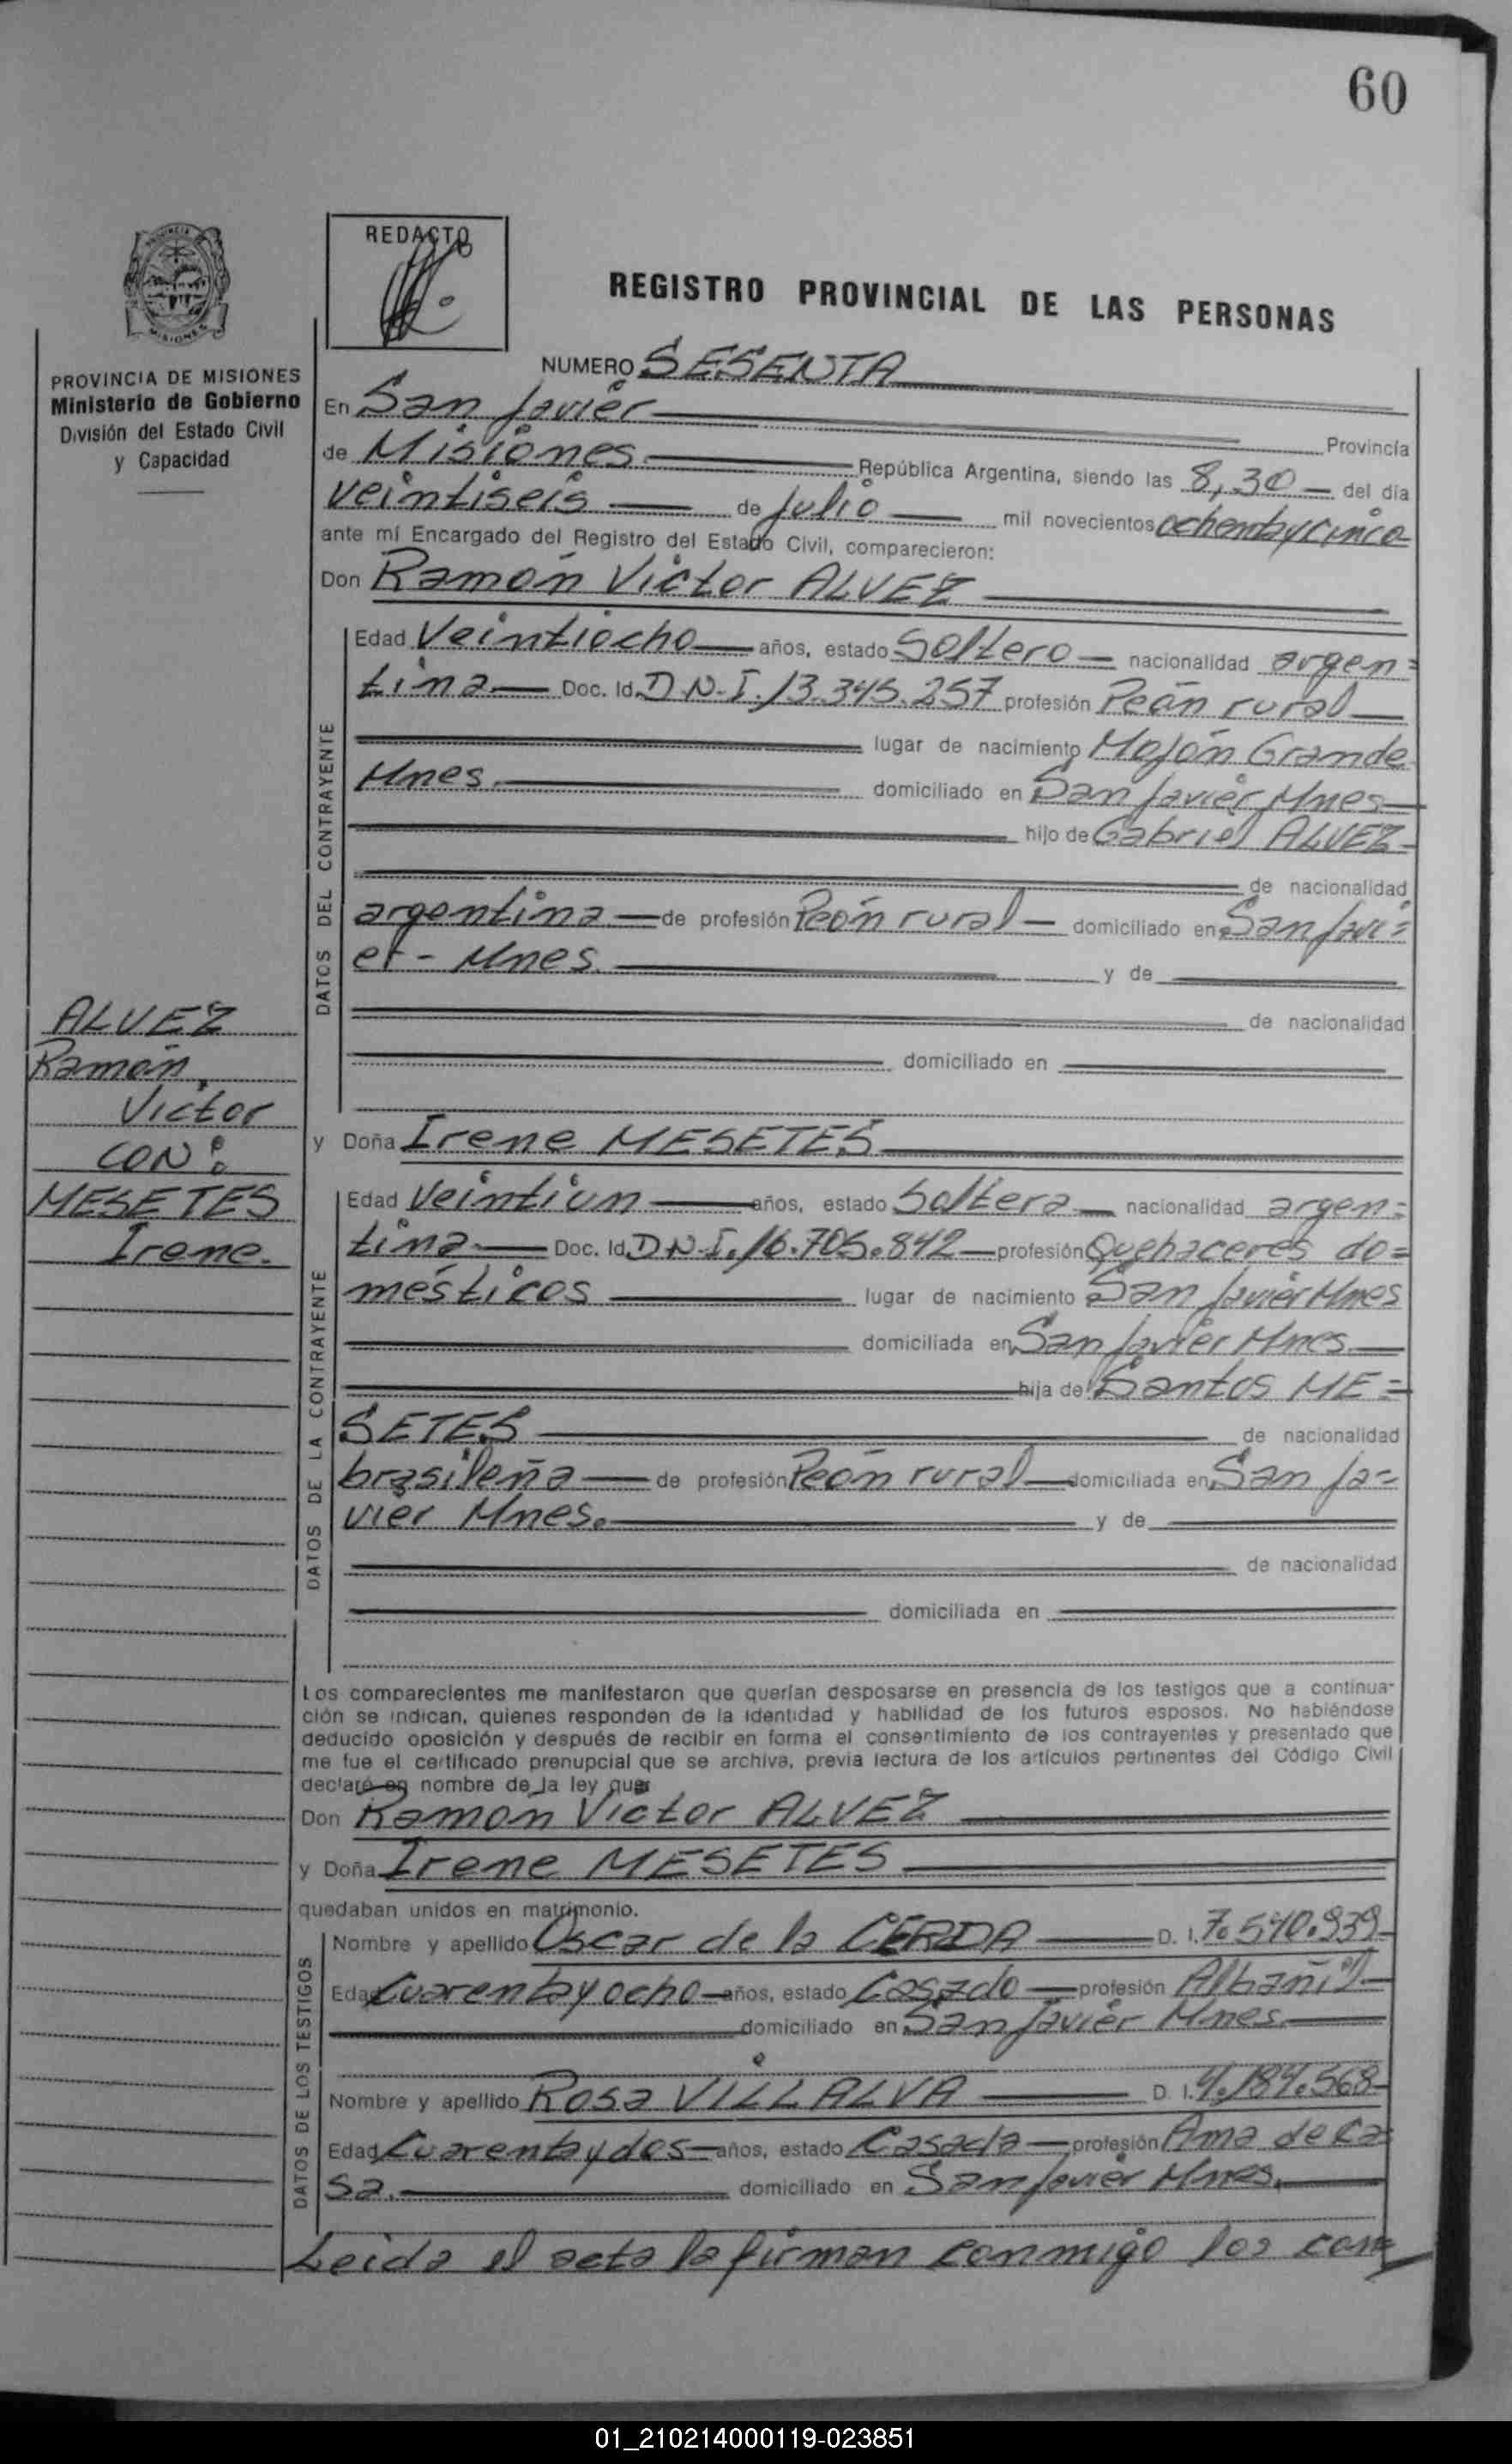 60
REDACTO
REGISTRO PROVINCIAL DE LAS PERSONAS
PROVINCIA DE MISIONES
Ministerio de Gobierno
División del Estado Civil
y Capacidad
NUMERO SESENTA
En San Javier Provincia
de Misiones República Argentina, siendo las 8,30 del día
veintiseis de Julio mil novecientos ochentaycinco
ante mí Encargado del Registro del Estado Civil, comparecieron:
Don Ramón Victor ALVEZ
DATOS DEL CONTRAYENTE
Edad Veintiocho años, estado Soltero nacionalidad argen=
tina Doc. Id. D.N.I. 13.345.257 profesión Peón rural
lugar de nacimiento Mojón Grande
Mnes. domiciliado en San Javier Mnes
hijo de Gabriel ALVEZ
de nacionalidad
argentina de profesión Peón rural domiciliado en San Javi=
er - Mnes. y de
de nacionalidad
domiciliado en
ALVEZ
Ramón
Victor
CON:
MESETES
Irene.
y Doña Irene MESETES
DATOS DE LA CONTRAYENTE
Edad Veintiun años, estado Soltera nacionalidad argen=
tina Doc. Id. D.N.I. 16.705.842 profesión Quehaceres do=
mésticos lugar de nacimiento San Javier Mnes
domiciliada en San Javier Mnes.
hija de Santos ME=
SETES de nacionalidad
brasileña de profesión Peón rural domiciliada en San Ja=
vier Mnes. y de
de nacionalidad
domiciliada en
Los comparecientes me manifestaron que querían desposarse en presencia de los testigos que a continua-
ción se indican, quienes responden de la identidad y habilidad de los futuros esposos. No habiéndose
deducido oposición y después de recibir en forma el consentimiento de los contrayentes y presentado que
me fue el certificado prenupcial que se archiva, previa lectura de los artículos pertinentes del Código Civil
declaré en nombre de la ley que:
Don Ramón Victor ALVEZ
y Doña Irene MESETES
quedaban unidos en matrimonio.
DATOS DE LOS TESTIGOS
Nombre y apellido Oscar de la CERDA D. I. 7.540.939
Edad Cuarentayocho años, estado Casado profesión Albañil
domiciliado en San Javier Mnes.
Nombre y apellido Rosa VILLALVA D. I. 4.184.568
Edad Cuarentaydos años, estado Casada profesión Ama de Ca=
sa. domiciliado en San Javier Mnes.
Leida el acta la firman conmigo los con=
01_210214000119-023851